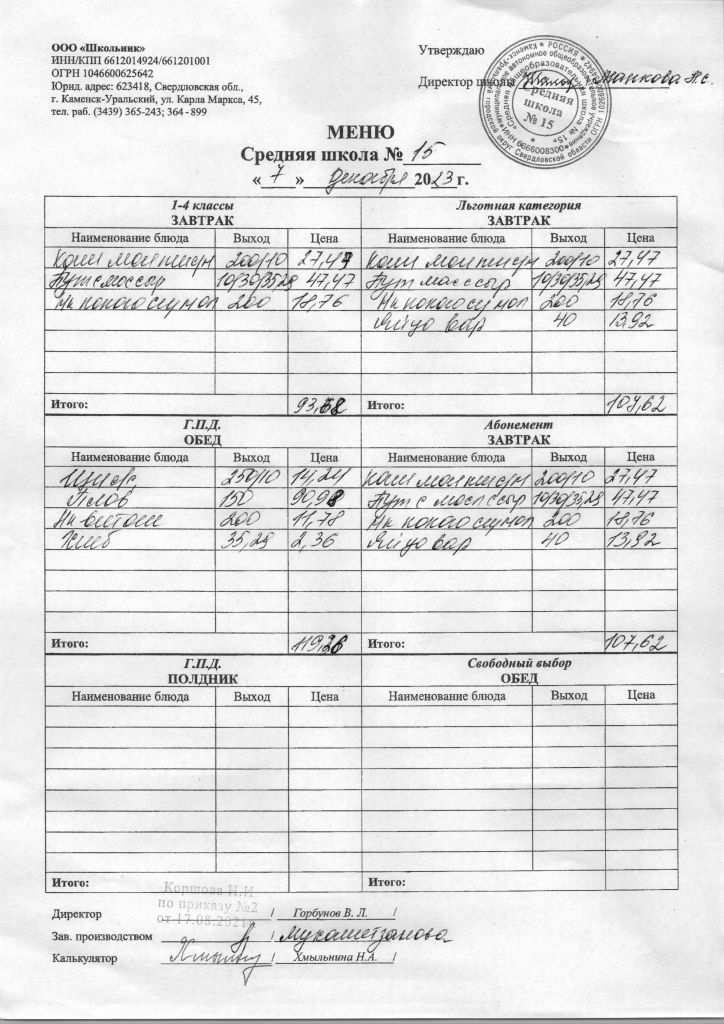 ООО «Школьник»
ИНН/КПП 6612014924/661201001
ОГРН 1046600625642
Юрид. адрес: 623418, Свердловская обл.,
г. Каменск-Уральский, ул. Карла Маркса, 45,
тел. раб. (3439) 365-243; 364 - 899
Утверждаю
Директор школы Манкова Н.С.
средняя
школа
№ 15
МЕНЮ
Средняя школа № 15
« 7 » декабря 2023 г.
1-4 классы Льготная категория
ЗАВТРАК ЗАВТРАК
Наименование блюда Выход Цена Наименование блюда Выход Цена
200/10 27,47 200/10 27,47
Бут с масс сыр 10/30/35,29 47,47 Бут масс сыр 10/30/35,29 47,47
Нк какао сгу мол 200 18,76 Нк какао сгу мол 200 18,76
Яйцо вар 40 13,92
Итого: 93,68 Итого: 107,62
Г.П.Д. Абонемент
ОБЕД ЗАВТРАК
Наименование блюда Выход Цена Наименование блюда Выход Цена
Щи 250/10 14,24 200/10 27,47
Плов 150 90,98 Бут с масл сыр 10/30/35,29 47,47
Нк витош 200 11,78 Нк какао сгу мол 200 18,76
Хлеб 35,29 2,36 Яйцо вар 40 13,92
Итого: 119,36 Итого: 107,62
Г.П.Д. Свободный выбор
ПОЛДНИК ОБЕД
Наименование блюда Выход Цена Наименование блюда Выход Цена
Итого: Итого:
Коршова Н.И
по приказу №2
от 17.08.2021г
Директор / Горбунов В. Л. /
Зав. производством / Мухаметзанова
Калькулятор / Хмыльнина Н.А. /